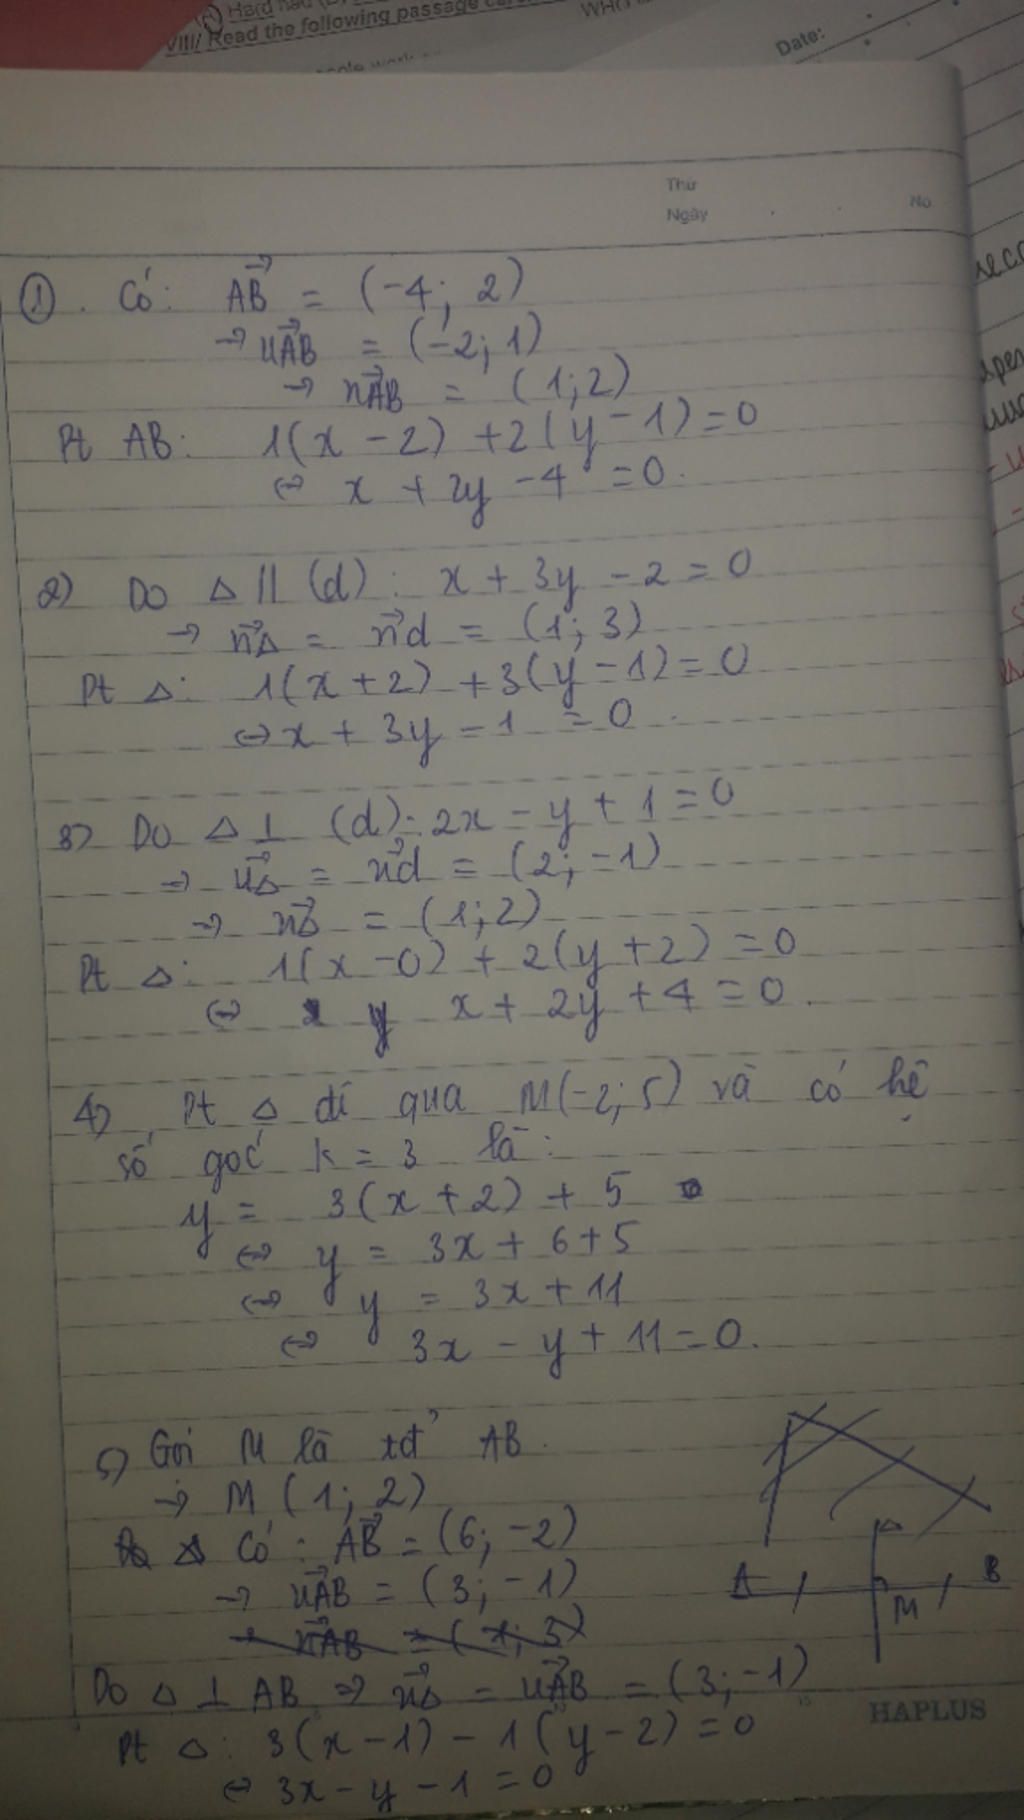 Hard had
VIII/ Read the following passage
Date:
Thứ
Ngày
No
① . Có: AB⃗ = (-4; 2)
→ u⃗AB = (-2; 1)
→ n⃗AB = (1; 2)
Pt AB: 1(x - 2) + 2(y - 1) = 0
⇔ x + 2y - 4 = 0.
2) Do Δ // (d): x + 3y - 2 = 0
→ n⃗Δ = n⃗d = (1; 3)
Pt Δ: 1(x + 2) + 3(y - 1) = 0
⇔ x + 3y - 1 = 0.
3) Do Δ ⊥ (d): 2x - y + 1 = 0
→ u⃗Δ = n⃗d = (2; -1)
→ n⃗Δ = (1; 2)
Pt Δ: 1(x - 0) + 2(y + 2) = 0
⇔ x + 2y + 4 = 0.
4) Pt Δ đi qua M(-2; 5) và có hệ
số góc k = 3 là:
y = 3(x + 2) + 5
⇔ y = 3x + 6 + 5
⇔ y = 3x + 11
⇔ 3x - y + 11 = 0.
5) Gọi M là tđ AB.
→ M (1; 2)
Có: AB⃗ = (6; -2)
→ u⃗AB = (3; -1)
Δ
A
M
B
Do Δ ⊥ AB → n⃗Δ = u⃗AB = (3; -1)
HAPLUS
Pt Δ: 3(x - 1) - 1(y - 2) = 0
⇔ 3x - y - 1 = 0